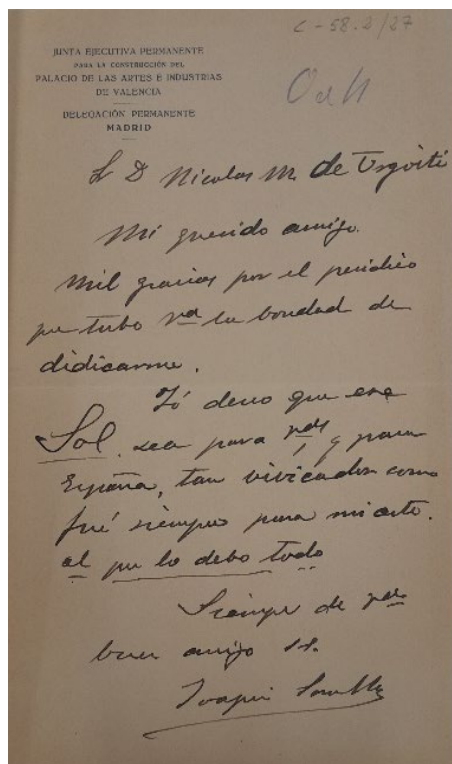 C-58.2/27
JUNTA EJECUTIVA PERMANENTE
PARA LA CONSTRUCCIÓN DEL
PALACIO DE LAS ARTES E INDUSTRIAS
DE VALENCIA
DELEGACIÓN PERMANENTE
MADRID
Sr D Nicolas M. de Urgoiti
Mi querido amigo.
Mil gracias por el periodico
que tubo Vd la bondad de
didicarme.
Yó deseo que ese
Sol, sea para Vds, y para
España, tan vivicador como
fué siempre para mi arte.
al que lo debo todo
Siempre de Vd
buen amigo
Joaquin Sorolla